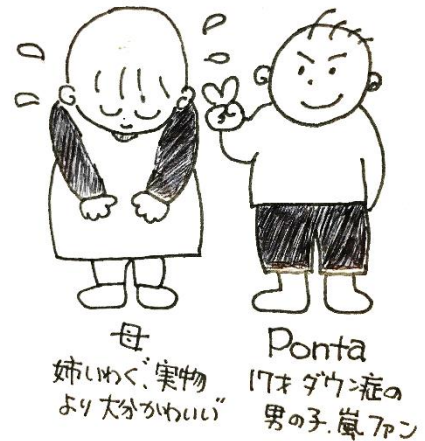 母
姉いわく、実物
より大分かわいい
Ponta
17才 ダウン症の
男の子.嵐ファン